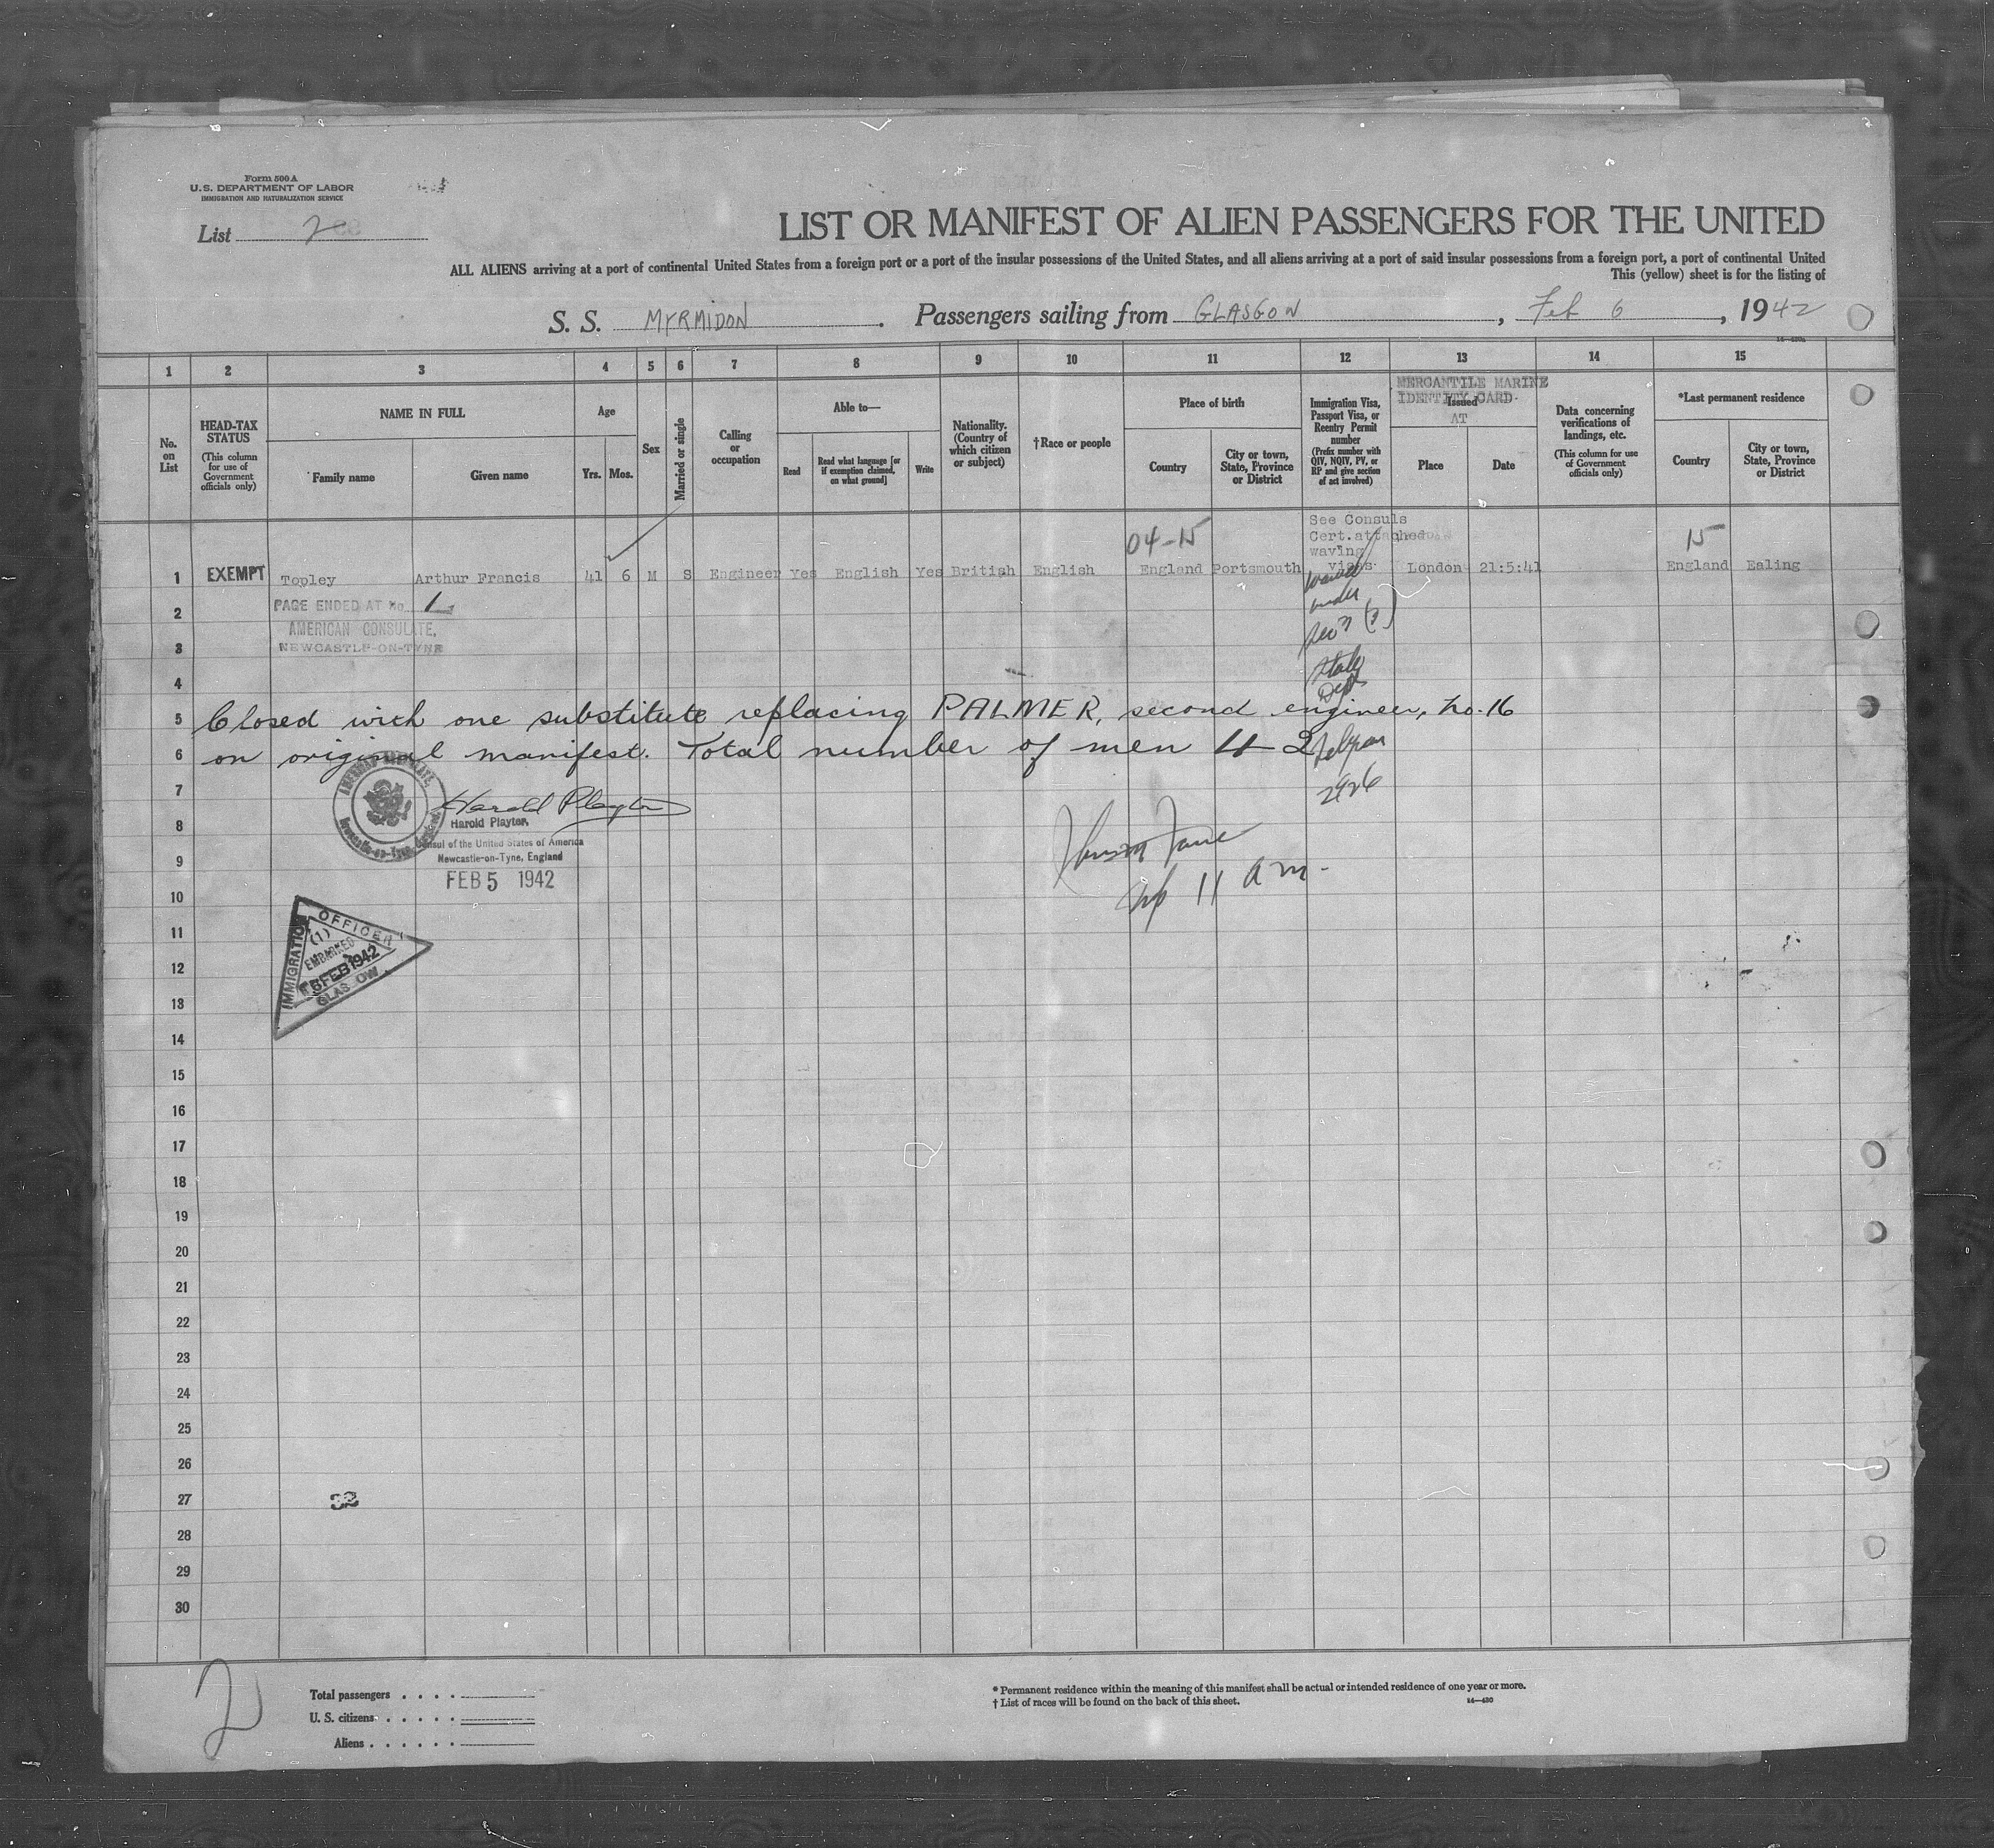 Form 500 A
U.S. DEPARTMENT OF LABOR
IMMIGRATION AND NATURALIZATION SERVICE
List 2
LIST OR MANIFEST OF ALIEN PASSENGERS FOR THE UNITED
ALL ALIENS arriving at a port of continental United States from a foreign port or a port of the insular possessions of the United States, and all aliens arriving at a port of said insular possessions from a foreign port, a port of continental United
This (yellow) sheet is for the listing of
S. S. MYRMIDON. Passengers sailing from GLASGOW, Feb 6, 1942
1 2 3 4 5 6 7 8 9 10 11 12 13 14 15
No. on List
HEAD-TAX STATUS
(This column for use of Government officials only)
NAME IN FULL
Family name
Given name
Age
Yrs. Mos.
Sex
Married or single
Calling or occupation
Able to—
Read
Read what language [or if exemption claimed, on what ground]
Write
Nationality. (Country of which citizen or subject)
†Race or people
Place of birth
Country
City or town, State, Province or District
Immigration Visa, Passport Visa, or Reentry Permit number
(Prefix number with QIV, NQIV, PV, or RP and give section of act involved)
MERCANTILE MARINE
IDENTITY CARD
Issued
AT
Place
Date
Data concerning verifications of landings, etc.
(This column for use of Government officials only)
*Last permanent residence
Country
City or town, State, Province or District
04-15
See Consuls
Cert.attached
waving
visas.
15
1 EXEMPT Topley Arthur Francis 41 6 M S Engineer Yes English Yes British English England Portsmouth London 21:5:41 England Ealing
waived
under
Sec 3 (3)
State
Dept
2 PAGE ENDED AT No. 1
AMERICAN CONSULATE,
3 NEWCASTLE-ON-TYNE
4
5 Closed with one substitute replacing PALMER, second engineer, No. 16
6 on original manifest. Total number of men 42
2926
7
Harold Playter
8 Harold Playter,
Consul of the United States of America
9 Newcastle-on-Tyne, England
FEB 5 1942
11 am.
10
11
IMMIGRATION OFFICER
(1)
EMBARKED
5 FEB 1942
GLASGOW
12
13
14
15
16
17
18
19
20
21
22
23
24
25
26
27 32
28
29
30
2
Total passengers
U. S. citizens
Aliens
* Permanent residence within the meaning of this manifest shall be actual or intended residence of one year or more.
† List of races will be found on the back of this sheet.
14—430